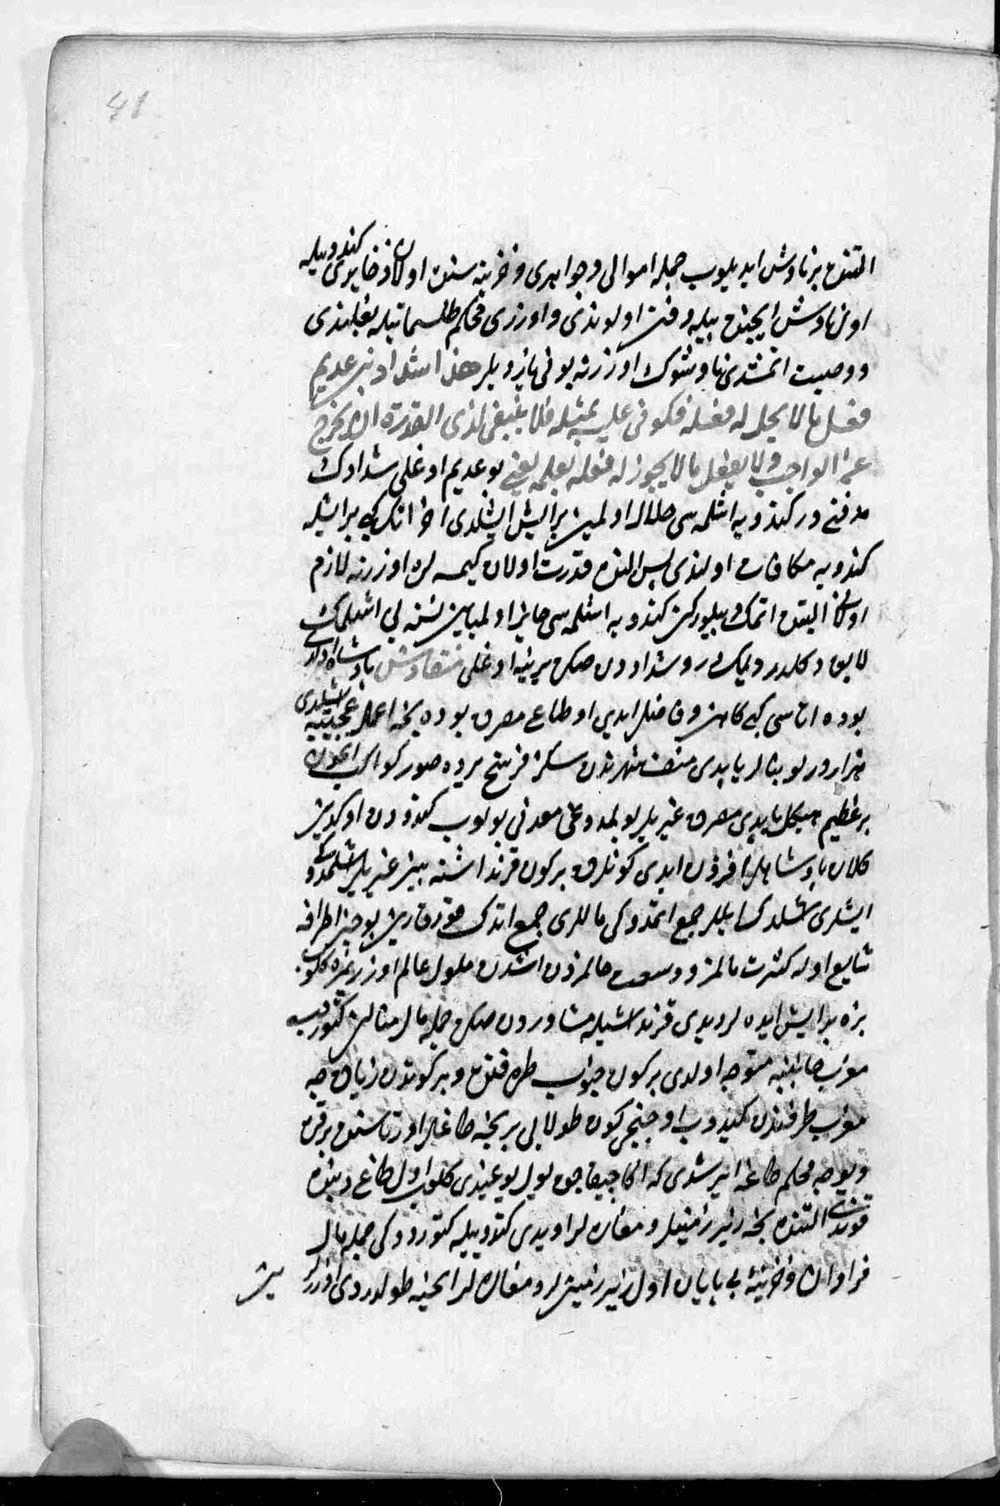 41
التنده بر ناوش ایدیلیوب جمله اموالی و جواهری و خزینه سنده اولان ذخایری کندو بیله
اول ناوش ایچنده بیله دفن اولوندی و اوزری محکم طلسماتیله بغلندی
و وصیت اتمشدی ناوشوك اوزرنه بونی یازدیلر هذا شداد بن عدیم
فعل ما لا یحل له فعله فکوفی علیه بمثله فلا ینبغی لذی القدرة ان یخرج
عن الواجب ولا یفعل ما لا یجوز له فعله بعلمه یعنی بو عدیم اوغلی شدادك
مدفنی در کندویه اشلمسی حلال اولمین بر ایش اشلدی اخر انك كبی بر ایشله
کندویه مکافات اولندی پس النده قدرت اولان کیمسه لره اوزرنه لازم
اولانی التنده اتمك بیلورکن کندویه اشلمسی جایز اولمیان نسنه یی اشلمك
لایق دکلدر دیمکدر و شداددن صکره یرینه اوغلی منقاوش پادشاه اولدی
بو ده اتاسی کبی کاهن و فاضل ایدی اوطاع مصرده بو ده نیجه اعمال عجیبه اشلدی
هزار درلو بنالر یاپدی منف شهرندن سکز فرسخ یرده صور کواکب ایچون
بر عظیم هیکل یاپدی مصرده غیر یلر بولمدوغی معدنی بولوب کندودن اوکدین
کلان پادشاهلردن افزون ایدی کونلرده بر کون قرنداشنه بیز غیریلر اشلمدك
ایشلری اشلدك ایللر جمع اتمدوکی ماللری جمع اتدك خوف وارین بو خبر اطرافه
شایع اوله کثرت مالمز و وسعت حالمزدن اشدن ملوك عالم اوزریمزه کلوب
بزه بر ایش ایده لر دیدی قرنداشیله مشاوردن صکره جمله مال منالن کتوردیب
مغرب جانبنه متوجه اولدی بر کون جنوب طرفنده و بر کوندن زیاده جه
مغرب طرفندن کیدوب اوچنجی کون طولایی بر نیجه طاغلر اورتاسنده بر قره
و یوجه محکم طاغه ایرشدی که اکا چیقاجق یول یوغیدی کلوب اول طاغ دیبنده
قوندی التنده نیجه زیر زمینلر و مغاره لر اویدی کندو بیله کتوردوکی جمله مال
فراوان و خزینه بی پایان اول زیر زمینلرد و مغاره لر ایچنه طولدردی اوزرلر